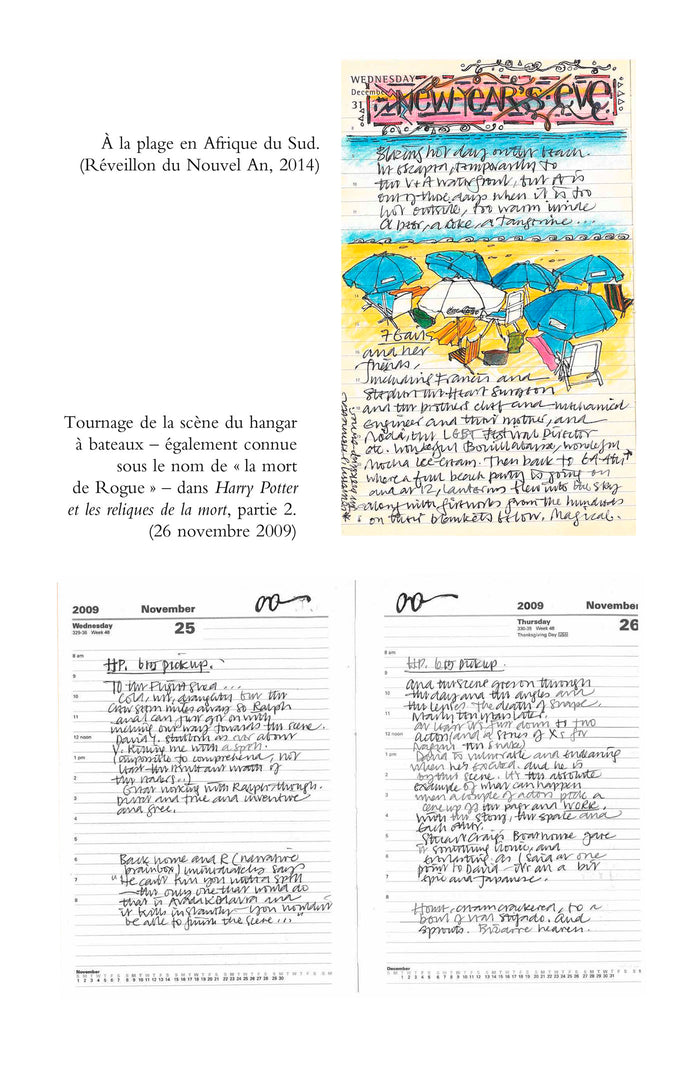 À la plage en Afrique du Sud.
(Réveillon du Nouvel An, 2014)
WEDNESDAY
December
31
NEW YEAR'S EVE
Blazing hot day on the beach.
temporarily to
the V+A waterfront, but it is
one of those days when it is too
hot outside, too warm inside
a beer, a coke, a tangerine...
7 Gail
and her
friends,
including Francis and
the Heart Surgeon
and the brothers chef and mechanical
engineer and their mother, and
the LGBT Festival Director
etc. Wonderful Bouillabaisse, wonderful
Mocha ice-cream. Then back to
where a full beach party is going on
and at 12, lanterns flew into the sky
along with fireworks from the hundreds
on their blankets below. Magical.
Tournage de la scène du hangar
à bateaux – également connue
sous le nom de « la mort
de Rogue » – dans Harry Potter
et les reliques de la mort, partie 2.
(26 novembre 2009)
2009 November
Wednesday 25
329-36 Week 48
8 am
HP. 6.50 pick up.
9
To the Flight Shed...
10
Cold, wet, draughty but the
crew seem miles away so Ralph
11
and I can just get on with
inching our way towards the scene.
12 noon
David Y. stubborn as ever about
V. killing me with a spell.
1 pm
(Impossible to comprehend, not
least the resultant wrath of
2
the readers...)
Great working with Ralph though.
3
Direct and true and inventive
and free.
4
5
6
Back home and R (narrative
brainbox) immediately says
7
"He can't kill you with a spell
– the only one that would do
8
that is Avada Kedavra and
it kills instantly – you wouldn't
be able to finish the scene..."
November
S M T W T F S S M T W T F S S M T W T F S S M T W T F S S M
1 2 3 4 5 6 7 8 9 10 11 12 13 14 15 16 17 18 19 20 21 22 23 24 25 26 27 28 29 30
2009 November
Thursday 26
330-35 Week 48
Thanksgiving Day
8 am
HP. 6.50 pick up.
9
And the scene goes on through
the day and the angles and
10
the lenses. The death of Snape.
Nearly ten years later.
11
At least it's just down to two
12 noon
actors (and a series of Xs for
Nagini the snake)
1 pm
David is vulnerable and endearing
when he's excited. And he is
2
by this scene. It's the absolute
example of what can happen
3
when a couple of actors pick a
scene up off the page and WORK
4
with the story, the space and
each other.
5
Stuart Craig's Boathouse gave
it something ironic, and
6
everlasting as I said at one
point to David – it's all a bit
7
epic and Japanese.
8
Home, cream crackered, to a
bowl of veal stufado. And
sprouts. Bizarre heaven.
December